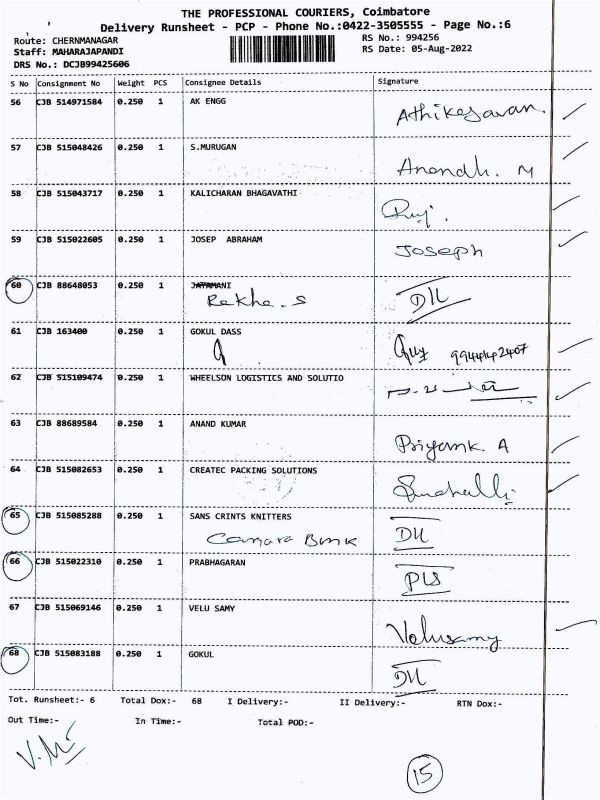 THE PROFESSIONAL COURIERS, Coimbatore
Delivery Runsheet - PCP - Phone No.:0422-3505555 - Page No.:6
Route: CHERNMANAGAR RS No.: 994256
Staff: MAHARAJAPANDI RS Date: 05-Aug-2022
DRS No.: DCJB99425606
S No Consignment No Weight PCS Consignee Details Signature
56 CJB 514971584 0.250 1 AK ENGG Athikesavan.
57 CJB 515048426 0.250 1 S.MURUGAN Anandh. M
58 CJB 515043717 0.250 1 KALICHARAN BHAGAVATHI
59 CJB 515022605 0.250 1 JOSEP ABRAHAM Joseph
60 CJB 88648053 0.250 1 JATAMANI
Rekha. S DIL
61 CJB 163400 0.250 1 GOKUL DASS
62 CJB 515109474 0.250 1 WHEELSON LOGISTICS AND SOLUTIO
63 CJB 88689584 0.250 1 ANAND KUMAR Priyank. A
64 CJB 515082653 0.250 1 CREATEC PACKING SOLUTIONS
65 CJB 515085288 0.250 1 SANS CRINTS KNITTERS
Canara Bank DIL
66 CJB 515022310 0.250 1 PRABHAGARAN
67 CJB 515069146 0.250 1 VELU SAMY Velusamy
68 CJB 515083188 0.250 1 GOKUL DIL
Tot. Runsheet:- 6 Total Dox:- 68 I Delivery:- II Delivery:- RTN Dox:-
Out Time:- In Time:- Total POD:-
15